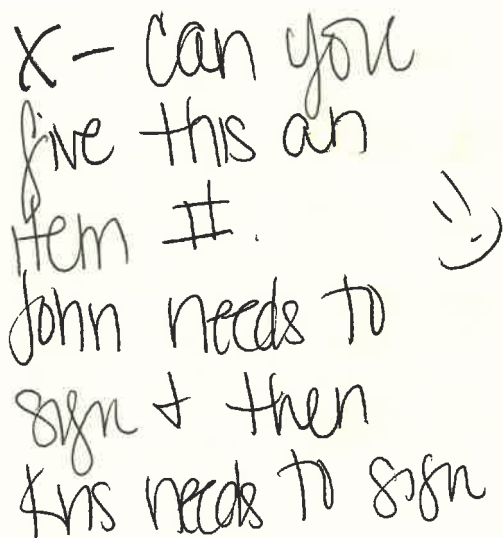 X- Can you
give this an
item #.
John needs to
sign + then
Kris needs to sign